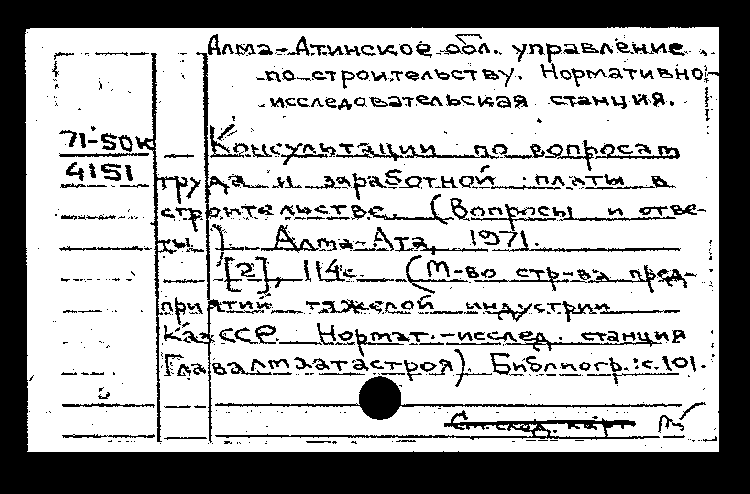 Алма-Атинское обл. управление
по строительству. Нормативно-
исследовательская станция.
71-50К
4151
Консультации по вопросам
труда и заработной платы в
строительстве. (Вопросы и отве-
ты). Алма-Ата, 1971.
[2], 114с. (М-во стр-ва пред-
приятий тяжелой индустрии
КазССР. Нормат.-исслед. станция
Главалмаатастроя). Библиогр.: с. 101.
См. след. карт